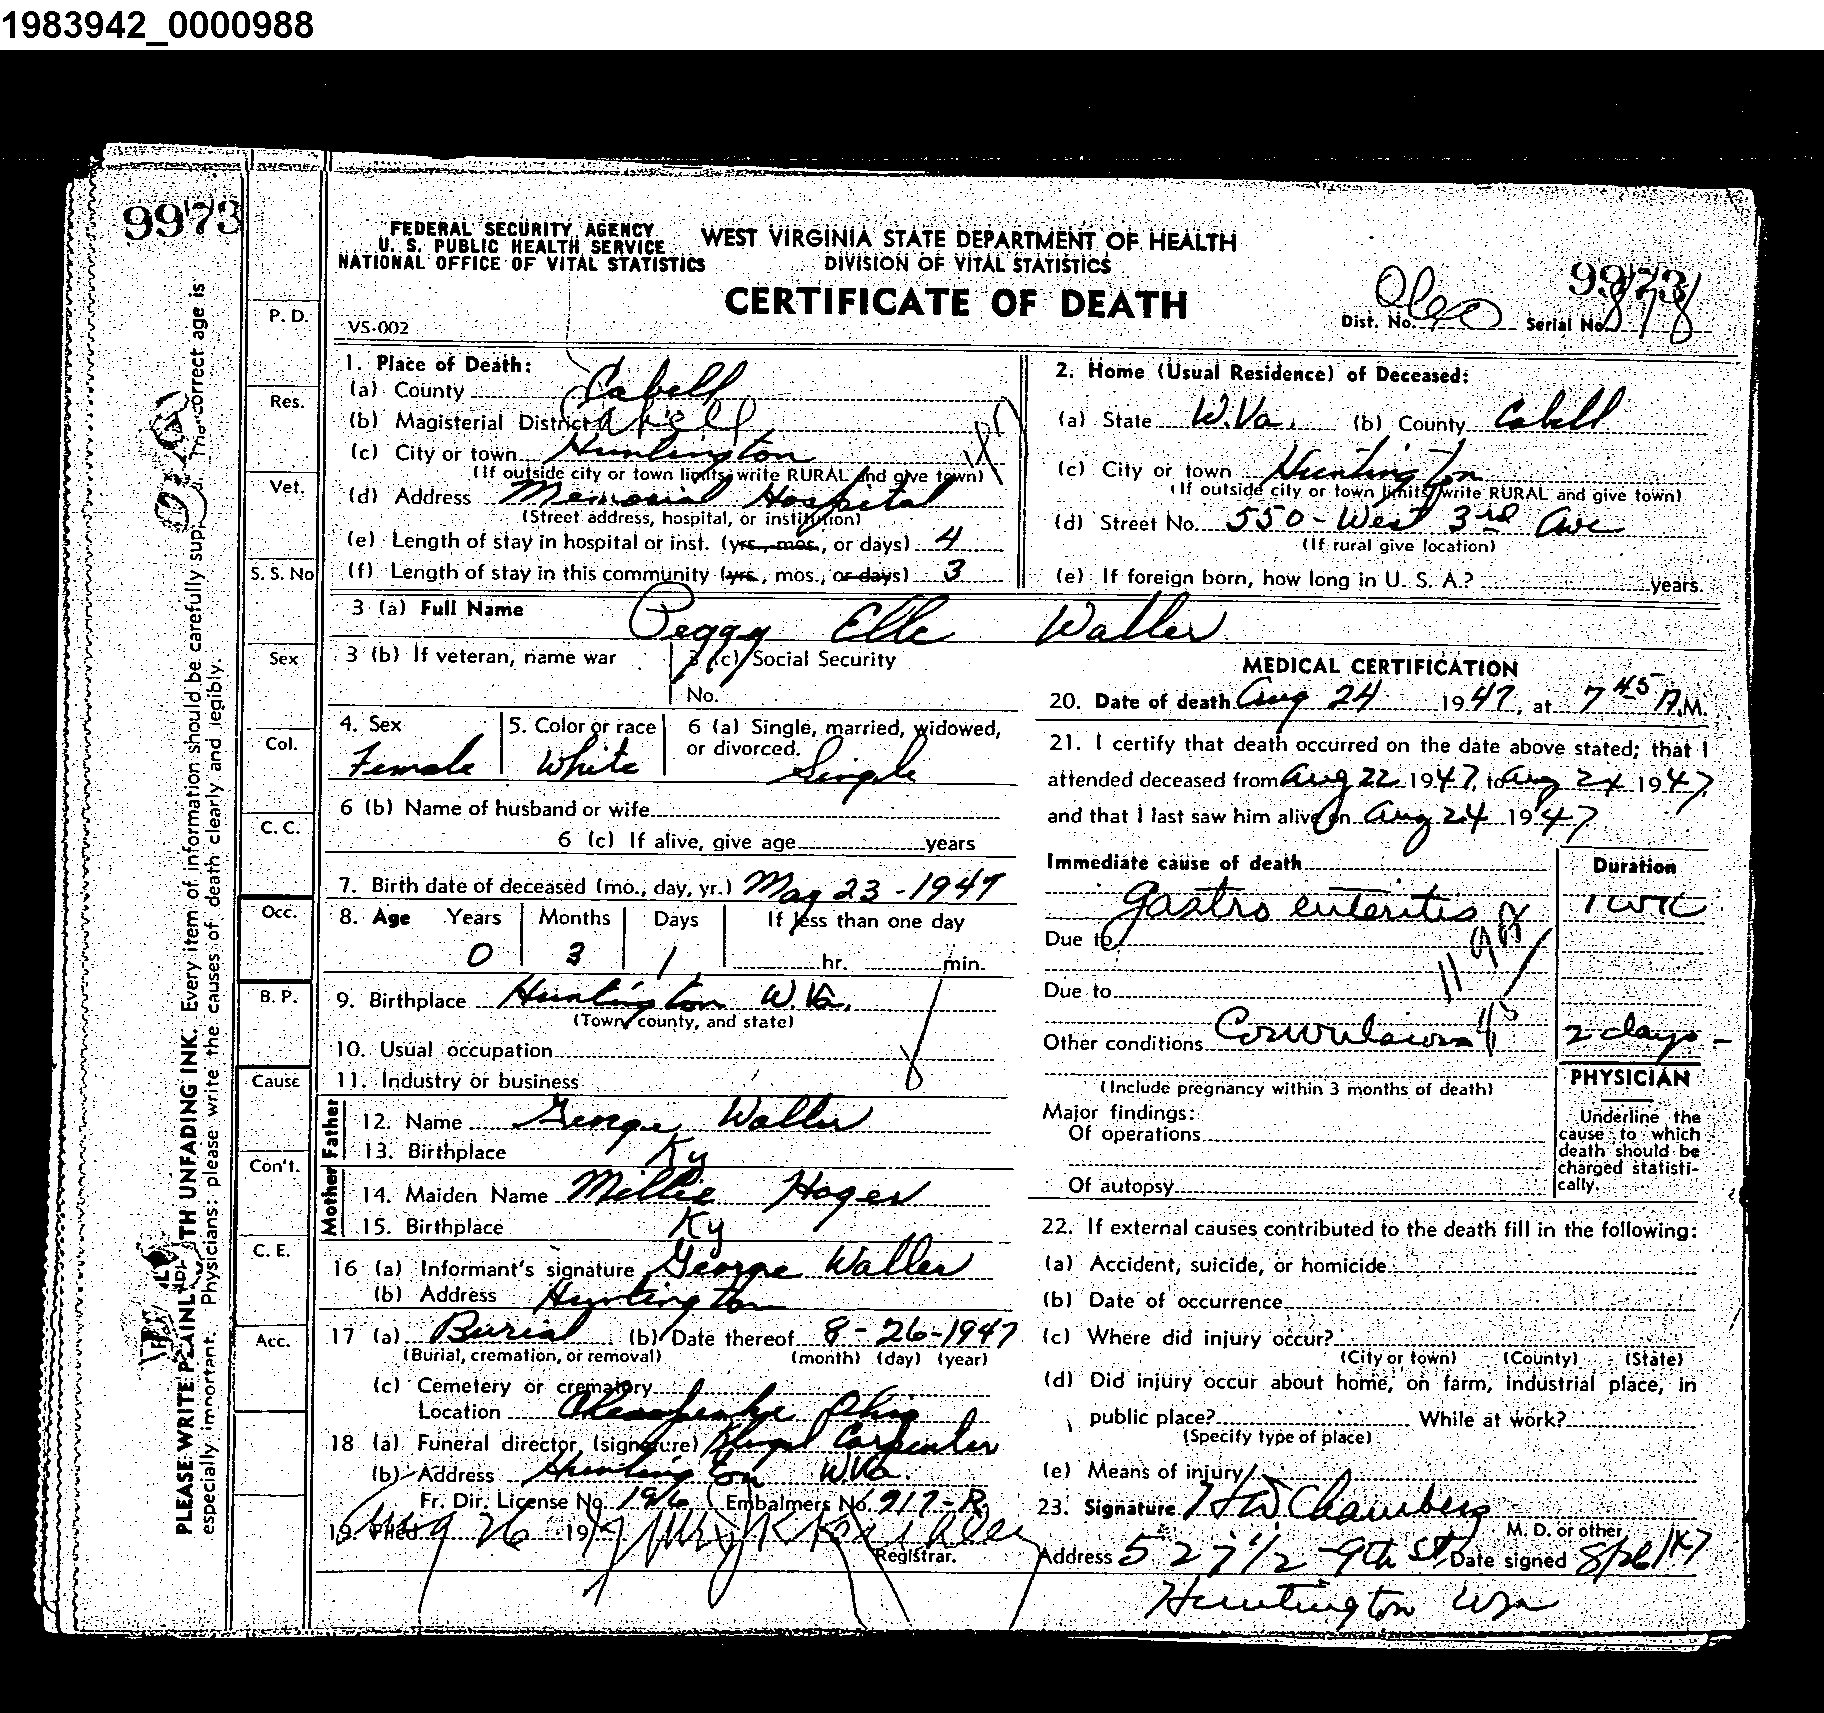 1983942_0000988
9973
FEDERAL SECURITY AGENCY
U. S. PUBLIC HEALTH SERVICE
NATIONAL OFFICE OF VITAL STATISTICS
WEST VIRGINIA STATE DEPARTMENT OF HEALTH
DIVISION OF VITAL STATISTICS
CERTIFICATE OF DEATH
VS-002
9973
Dist. No. Serial No. 878
1. Place of Death:
(a) County Cabell
(b) Magisterial District
(c) City or town Huntington
(If outside city or town limits, write RURAL and give town)
(d) Address Memorial Hospital
(Street address, hospital, or institution)
(e) Length of stay in hospital or inst. (yrs., mos., or days) 4
(f) Length of stay in this community (yrs., mos., or days) 3
2. Home (Usual Residence) of Deceased:
(a) State W.Va. (b) County Cabell
(c) City or town Huntington
(If outside city or town limits, write RURAL and give town)
(d) Street No. 550 - West 3rd Ave
(If rural give location)
(e) If foreign born, how long in U. S. A.? years.
3 (a) Full Name Peggy Elle Waller
3 (b) If veteran, name war
3 (c) Social Security
No.
4. Sex Female
5. Color or race White
6 (a) Single, married, widowed,
or divorced. Single
6 (b) Name of husband or wife
6 (c) If alive, give age years
7. Birth date of deceased (mo., day, yr.) May 23 - 1947
8. Age Years Months Days If less than one day
0 3 1 hr. min.
9. Birthplace Huntington W.Va.
(Town, county, and state)
10. Usual occupation
11. Industry or business
Father
12. Name George Waller
13. Birthplace Ky
Mother
14. Maiden Name Millie Hager
15. Birthplace Ky
16 (a) Informant's signature George Waller
(b) Address Huntington
17 (a) Burial (b) Date thereof 8-26-1947
(Burial, cremation, or removal) (month) (day) (year)
(c) Cemetery or crematory
Location Chesapeake Ohio
18 (a) Funeral director (signature) Carpenter
(b) Address Huntington W.Va.
Fr. Dir. License No. 1916 Embalmers No. 917-R
19. Filed Aug 26 19
Registrar.
MEDICAL CERTIFICATION
20. Date of death Aug 24 1947, at 7 45 A.M.
21. I certify that death occurred on the date above stated; that I
attended deceased from Aug 22 1947, to Aug 24 1947,
and that I last saw him alive on Aug 24 1947
Immediate cause of death Duration
Gastro enteritis 1 wk
Due to
Due to
Other conditions Convulsions 2 days
(Include pregnancy within 3 months of death)
Major findings:
Of operations
Of autopsy
PHYSICIAN
Underline the
cause to which
death should be
charged statisti-
cally.
22. If external causes contributed to the death fill in the following:
(a) Accident, suicide, or homicide
(b) Date of occurrence
(c) Where did injury occur?
(City or town) (County) (State)
(d) Did injury occur about home, on farm, industrial place, in
public place? While at work?
(Specify type of place)
(e) Means of injury
23. Signature HW Chambers
M. D. or other
Address 527 1/2 9th St Date signed 8/26/47
Huntington WVa
P. D.
Res.
Vet.
S. S. No
Sex
Col.
C. C.
Occ.
B. P.
Cause
Con't.
C. E.
Acc.
PLEASE WRITE PLAINLY WITH UNFADING INK. Every item of information should be carefully sup The correct age is
especially important. Physicians: please write the causes of death clearly and legibly.